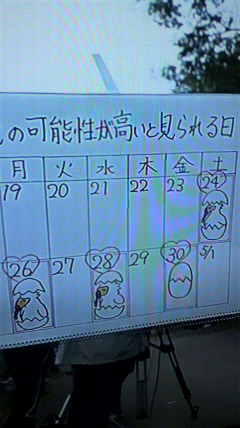 の可能性が高いと見られる日
月 火 水 木 金 土
19 20 21 22 23 24
26 27 28 29 30 5/1